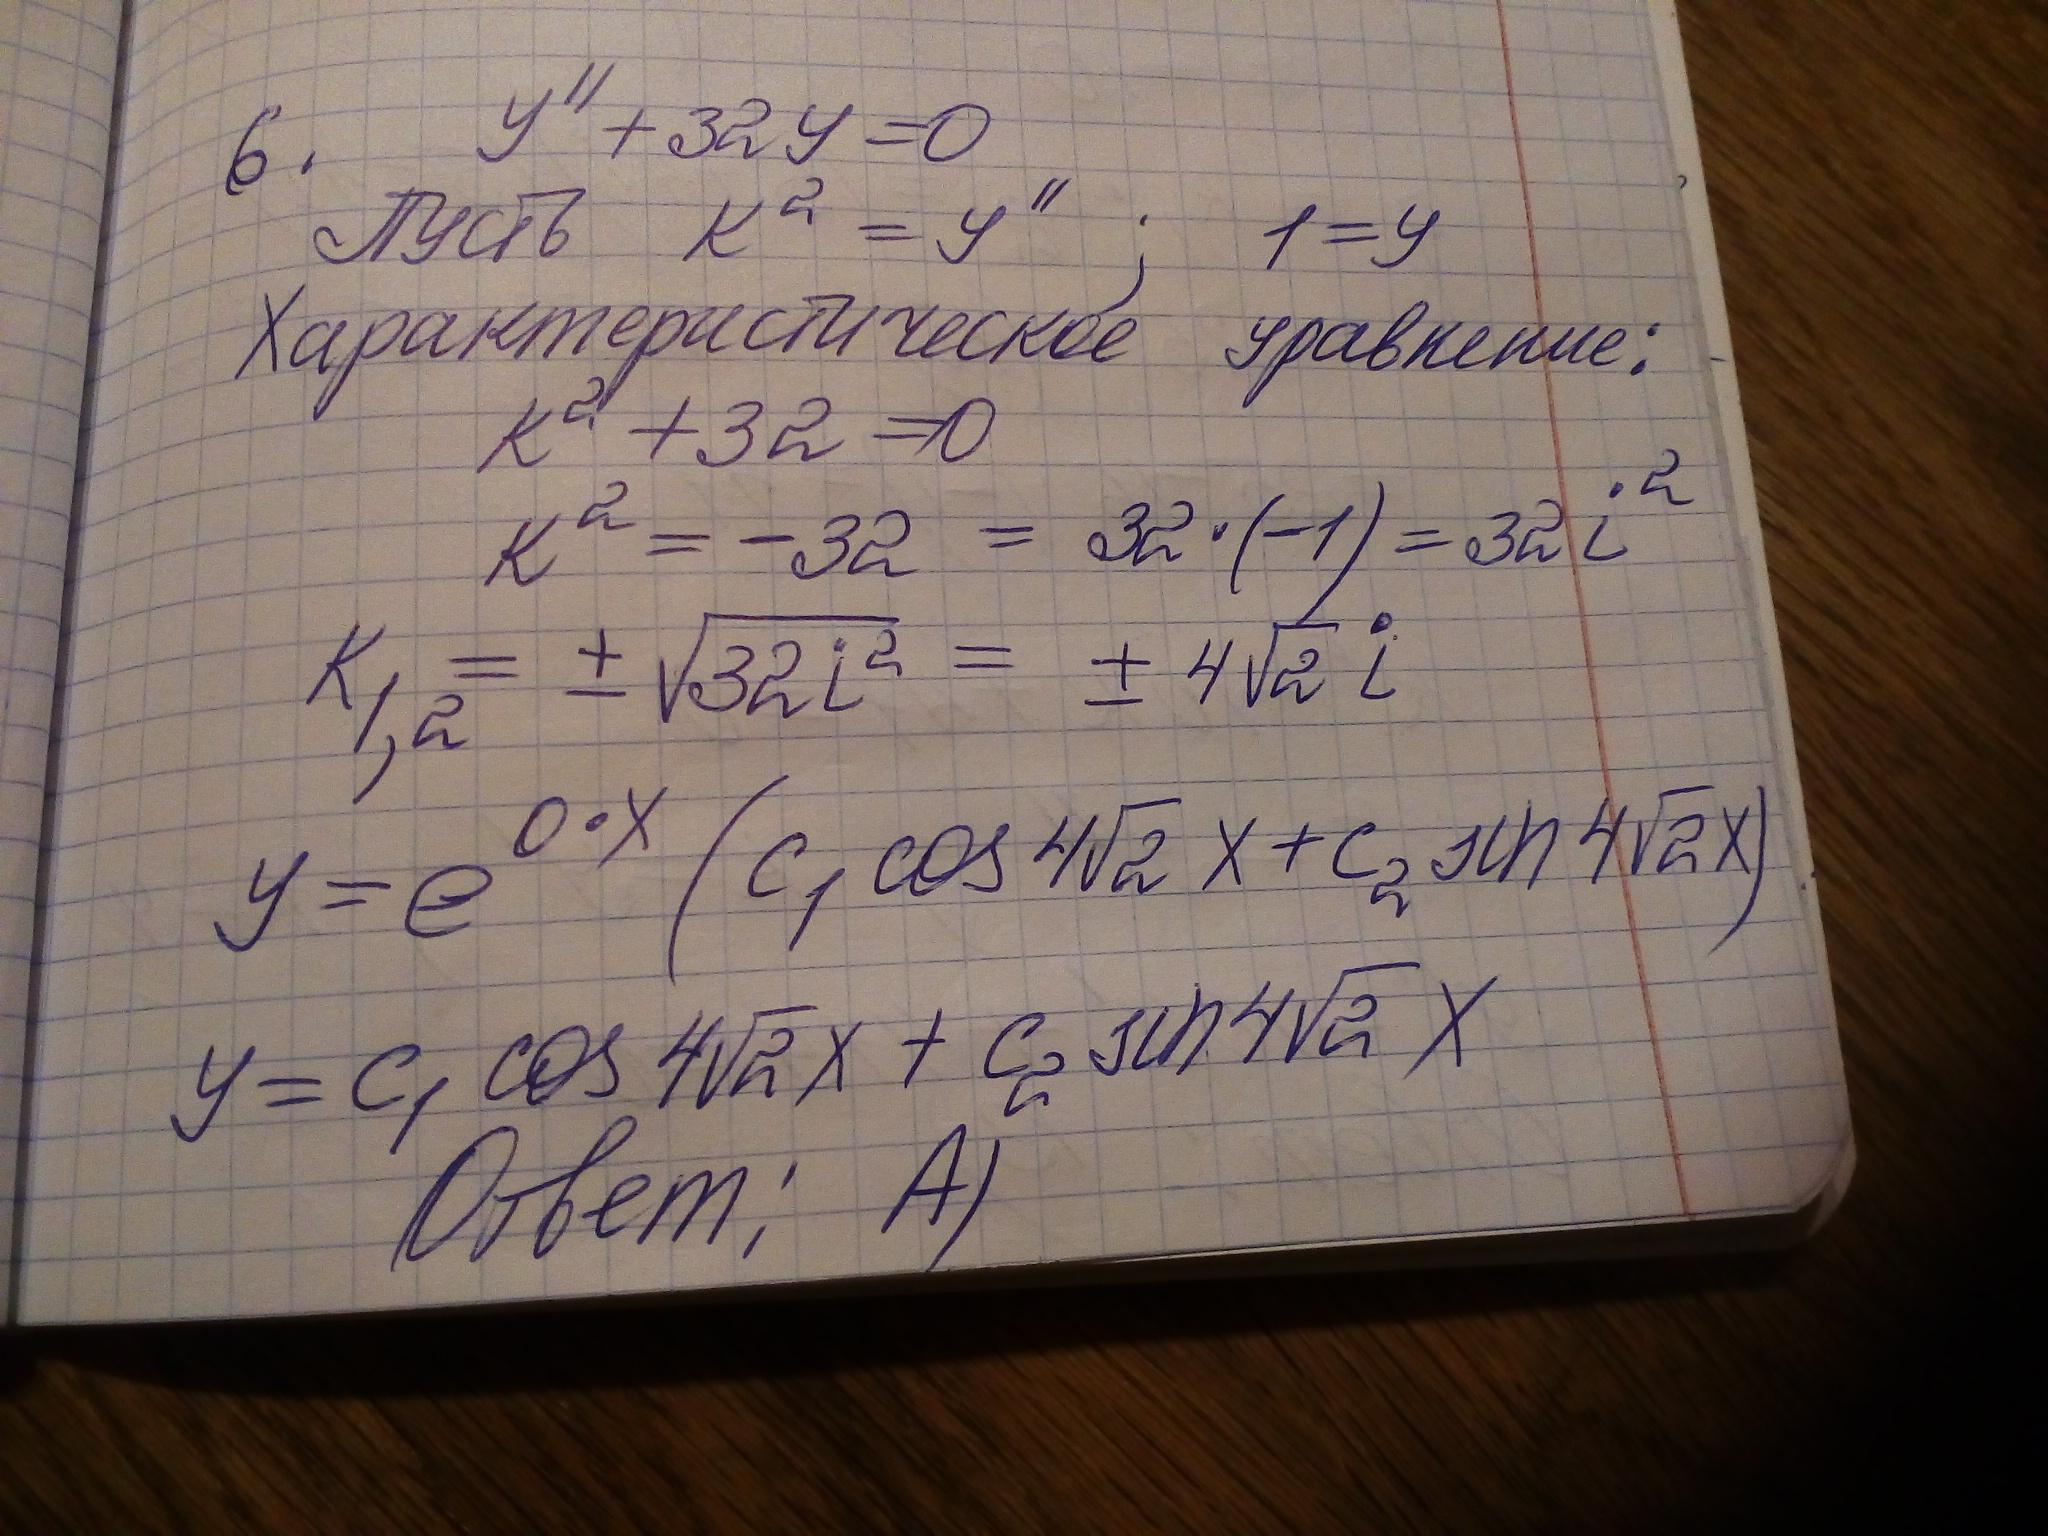 6. y'' + 32y = 0
Пусть к² = y'' ; 1 = y
Характеристическое уравнение:
к² + 32 = 0
к² = -32 = 32·(-1) = 32i²
К₁,₂ = ± √32i² = ± 4√2 i
y = e^(0·x) (C₁ cos 4√2 x + C₂ sin 4√2 x)
y = C₁ cos 4√2 x + C₂ sin 4√2 x
Ответ: А)